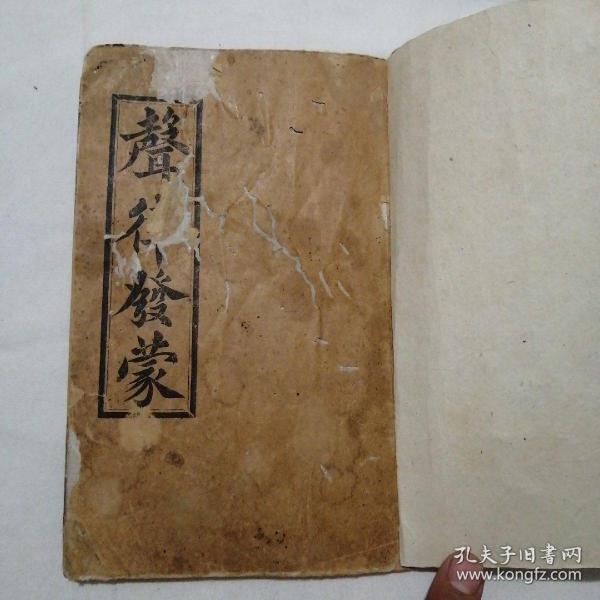 聲發蒙
孔夫子旧書网
www.kongfz.com